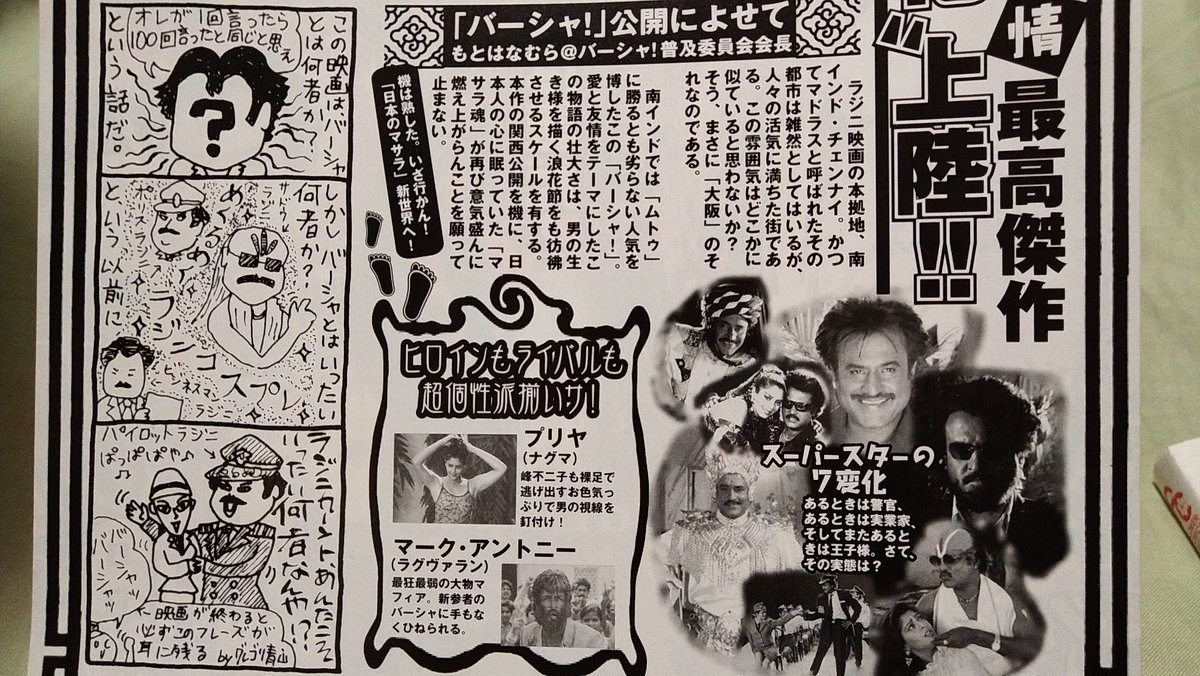 情
最高傑作
"上陸!!
「バーシャ!」公開によせて
もとはなむら@バーシャ!普及委員会会長
ラジニ映画の本拠地、南
インド・チェンナイ。かつ
てマドラスと呼ばれたその
都市は雑然としてはいるが、
人々の活気に満ちた街であ
る。この雰囲気はどこかに
似ていると思わないか?
そう、まさに「大阪」のそ
れなのである。
南インドでは「ムトゥ」
に勝るとも劣らない人気を
博したこの「バーシャ!」。
愛と友情をテーマにしたこ
の物語の壮大さは、男の生
き様を描く浪花節をも彷彿
させるスケールを有する。
本作の関西公開を機に、日
本人の心に眠っていた「マ
サラ魂」が再び意気盛んに
燃え上がらんことを願って
止まない。
機は熟した。いざ行かん!
「日本のマサラ」新世界へ!
スーパースターの
7変化
あるときは警官、
あるときは実業家、
そしてまたあると
きは王子様。さて、
その実態は?
ヒロインもライバルも
超個性派揃いサ!
プリヤ
(ナグマ)
峰不二子も裸足で
逃げ出すお色気っ
ぷりで男の視線を
釘付け!
マーク・アントニー
(ラグヴァラン)
最狂最弱の大物マ
フィア。新参者の
バーシャに手もな
くひねられる。
この映画は、バーシャ
とは何者か?
オレが1回言ったら
100回言ったと同じと思え
?
という話だ。
しかしバーシャとはいったい
何者か?
サドゥーラジニ
ポリスラジニ
めくるめく
ラジニ
コスプレ
ビジネスマン
ラジニ
という以前に
ラジニカーント、あんたこそ
いったい何者なんや!?
パイロットラジニ
ぱっぱぱや♪
バーシャッ
バーシャッ
映画が終わると
必ずこのフレーズが
耳に残る
byグレゴリ青山